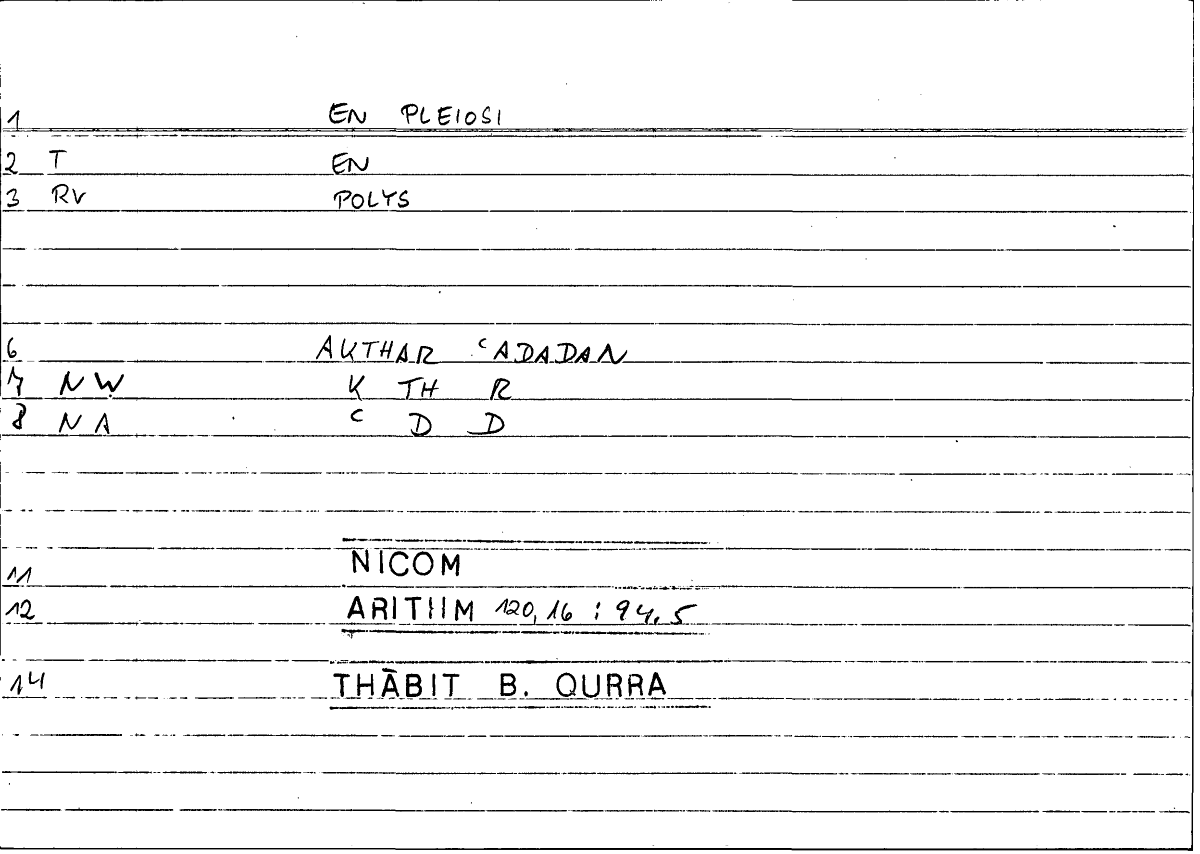 1 EN PLEIOSI
2 T EN
3 RV POLYS
6 AKTHAR ʿADADAN
7 NW K TH R
8 NA ʿ D D
11 NICOM
12 ARITHM 120,16 : 94,5
14 THĀBIT B. QURRA